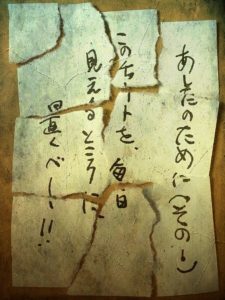 あしたのために(その一)
このチートを、毎日
見えるところに
置くべし!!